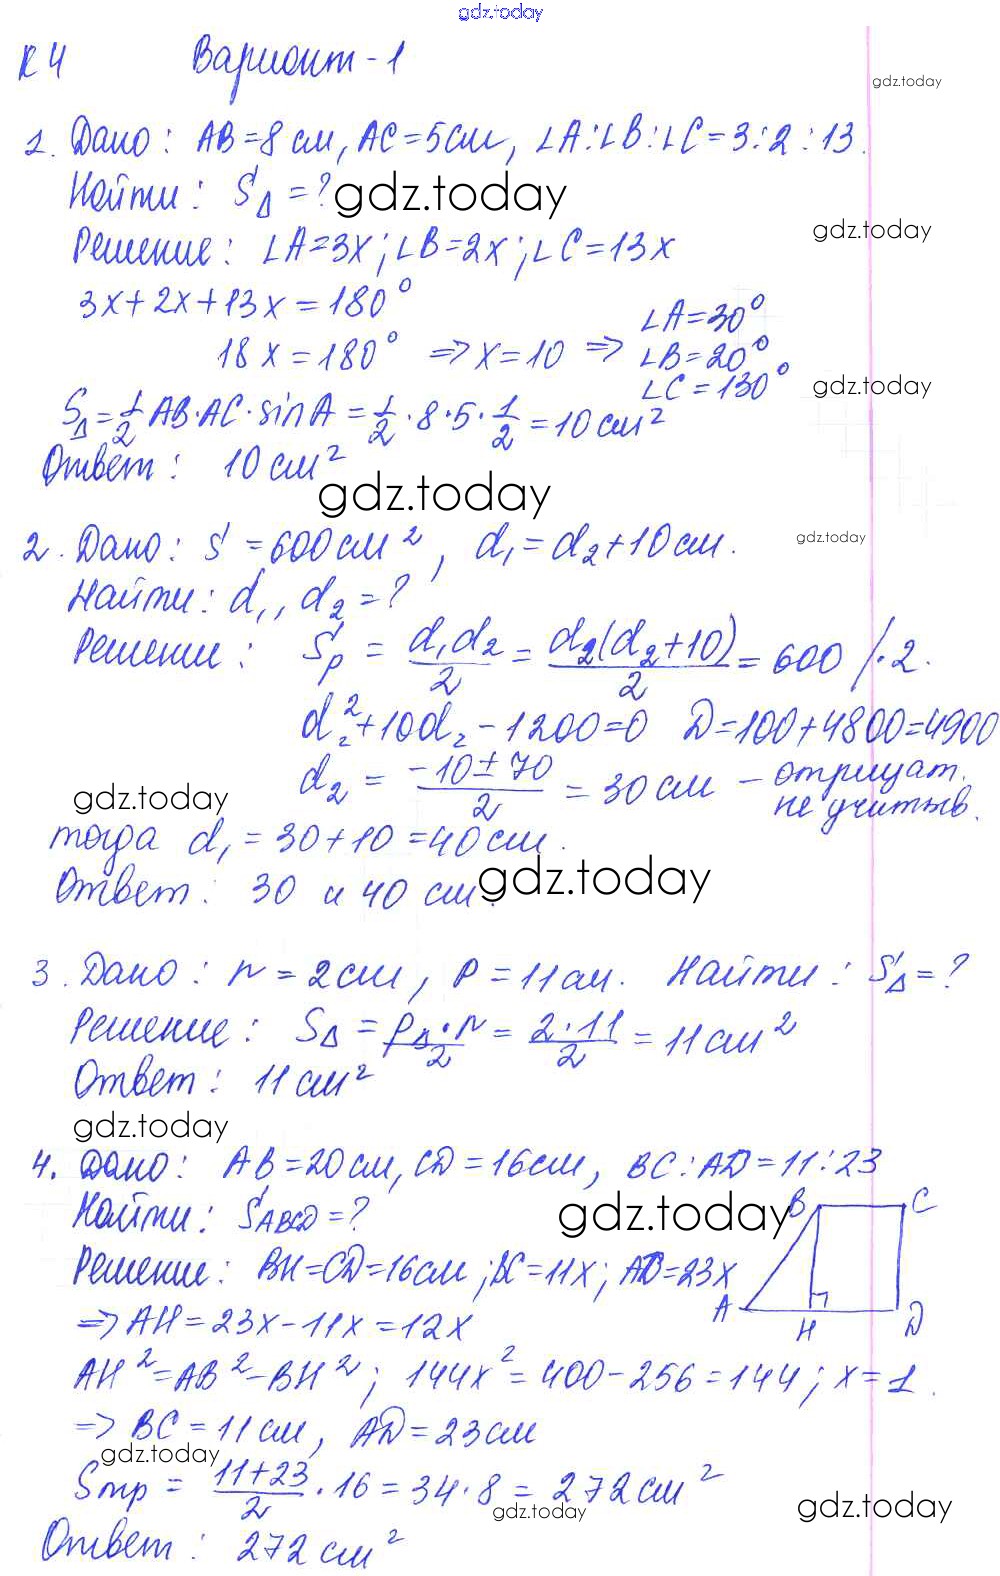 gdz.today
К 4 Вариант-1
gdz.today
1. Дано: AB=8см, AC=5см, ∠A:∠B:∠C=3:2:13.
Найти: S△=? gdz.today
gdz.today
Решение: ∠A=3x; ∠B=2x; ∠C=13x
3x+2x+13x=180°
18x=180° ⇒ x=10 ⇒ ∠A=30°
∠B=20°
∠C=130° gdz.today
S△=1/2 AB·AC·sinA=1/2·8·5·1/2=10см²
Ответ: 10см²
gdz.today
2. Дано: S=600см², d₁=d₂+10см. gdz.today
Найти: d₁, d₂=?
Решение: Sр = d₁d₂/2 = d₂(d₂+10)/2 = 600 /·2.
d₂²+10d₂-1200=0 D=100+4800=4900
d₂ = -10±70/2 = 30см – отрицат.
не учитыв.
gdz.today
тогда d₁=30+10=40см.
Ответ: 30 и 40 см. gdz.today
3. Дано: r=2см, P=11см. Найти: S△=?
Решение: S△=P△·r/2=2·11/2=11см²
Ответ: 11см²
gdz.today
4. Дано: AB=20см, CD=16см, BC:AD=11:23
Найти: SABCD=? gdz.today
B C
Решение: BH=CD=16см; BC=11x; AD=23x
A H D
⇒ AH=23x-11x=12x
AH²=AB²-BH²; 144x²=400-256=144; x=1.
⇒ BC=11см, AD=23см
gdz.today
Sтр = 11+23/2·16=34·8=272см²
gdz.today gdz.today
Ответ: 272см²